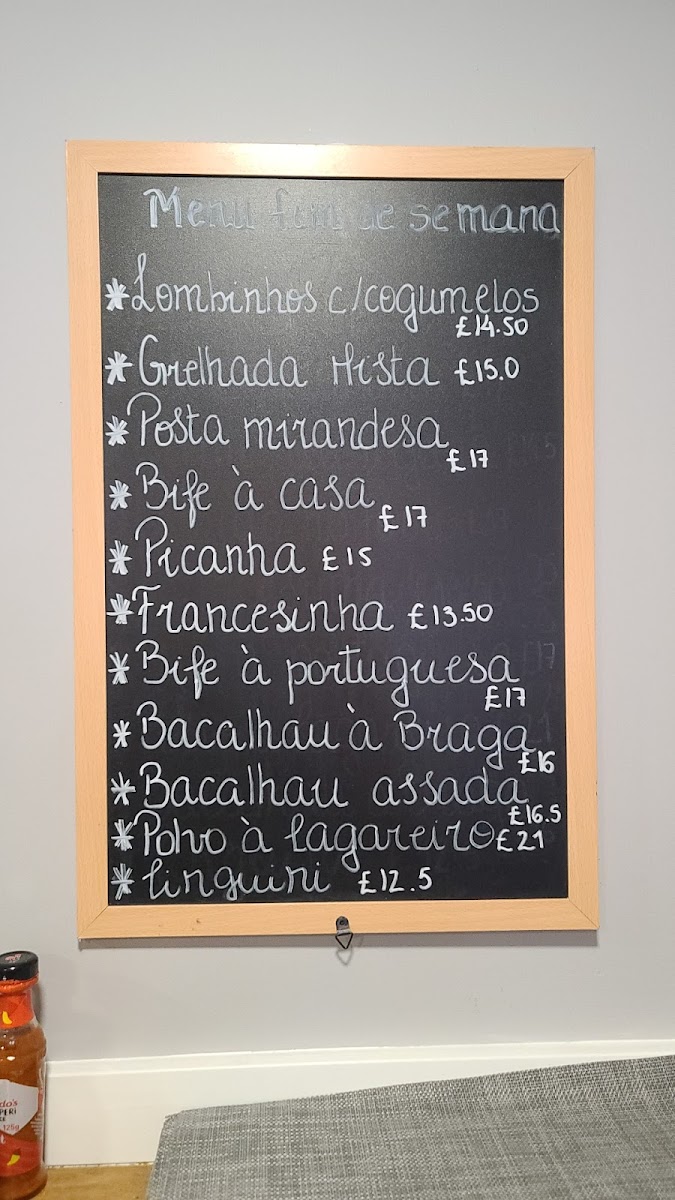 Menu fim de semana
*Lombinhos c/cogumelos
£14.50
*Grelhada Mista £15.0
*Posta mirandesa
£17
*Bife à casa
£17
*Picanha £15
*Francesinha £13.50
*Bife à portuguesa
£17
*Bacalhau à Braga
£16
*Bacalhau assada
£16.5
*Polvo à lagareiro £21
*linguini £12.5
PERi
125g